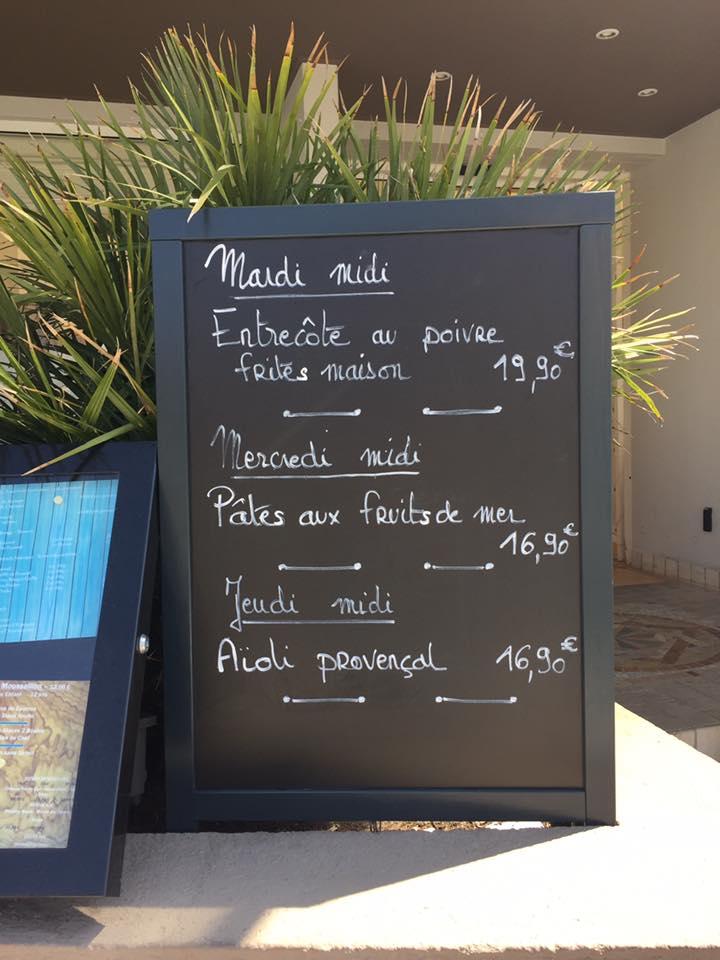 Mardi midi
Entrecôte au poivre
frites maison 19,90€
Mercredi midi
Pâtes aux fruits de mer
16,90€
Jeudi midi
Aïoli provençal 16,90€
Moussaillon